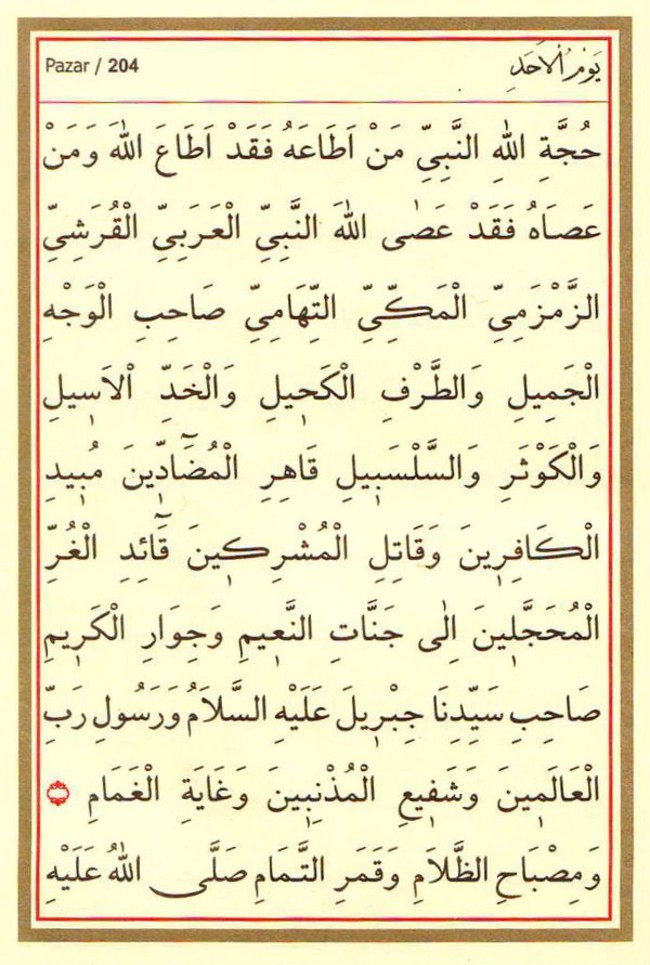 Pazar / 204
يَوْمُ الْاَحَدِ
حُجَّةِ اللّٰهِ النَّبِيِّ مَنْ اَطَاعَهُ فَقَدْ اَطَاعَ اللّٰهَ وَمَنْ
عَصَاهُ فَقَدْ عَصٰى اللّٰهَ النَّبِيِّ الْعَرَبِيِّ الْقُرَشِيِّ
الزَّمْزَمِيِّ الْمَكِّيِّ التِّهَامِيِّ صَاحِبِ الْوَجْهِ
الْجَمِيلِ وَالطَّرْفِ الْكَحٖيلِ وَالْخَدِّ الْاَسٖيلِ
وَالْكَوْثَرِ وَالسَّلْسَبٖيلِ قَاهِرِ الْمُضَٓادّٖينَ مُبٖيدِ
الْكَافِرٖينَ وَقَاتِلِ الْمُشْرِكٖينَ قَٓائِدِ الْغُرِّ
الْمُحَجَّلٖينَ اِلٰى جَنَّاتِ النَّعٖيمِ وَجِوَارِ الْكَرٖيمِ
صَاحِبِ سَيِّدِنَا جِبْرٖيلَ عَلَيْهِ السَّلَامُ وَرَسُولِ رَبِّ
الْعَالَمٖينَ وَشَفٖيعِ الْمُذْنِبٖينَ وَغَايَةِ الْغَمَامِ
وَمِصْبَاحِ الظَّلَامِ وَقَمَرِ التَّمَامِ صَلَّى اللّٰهُ عَلَيْهِ